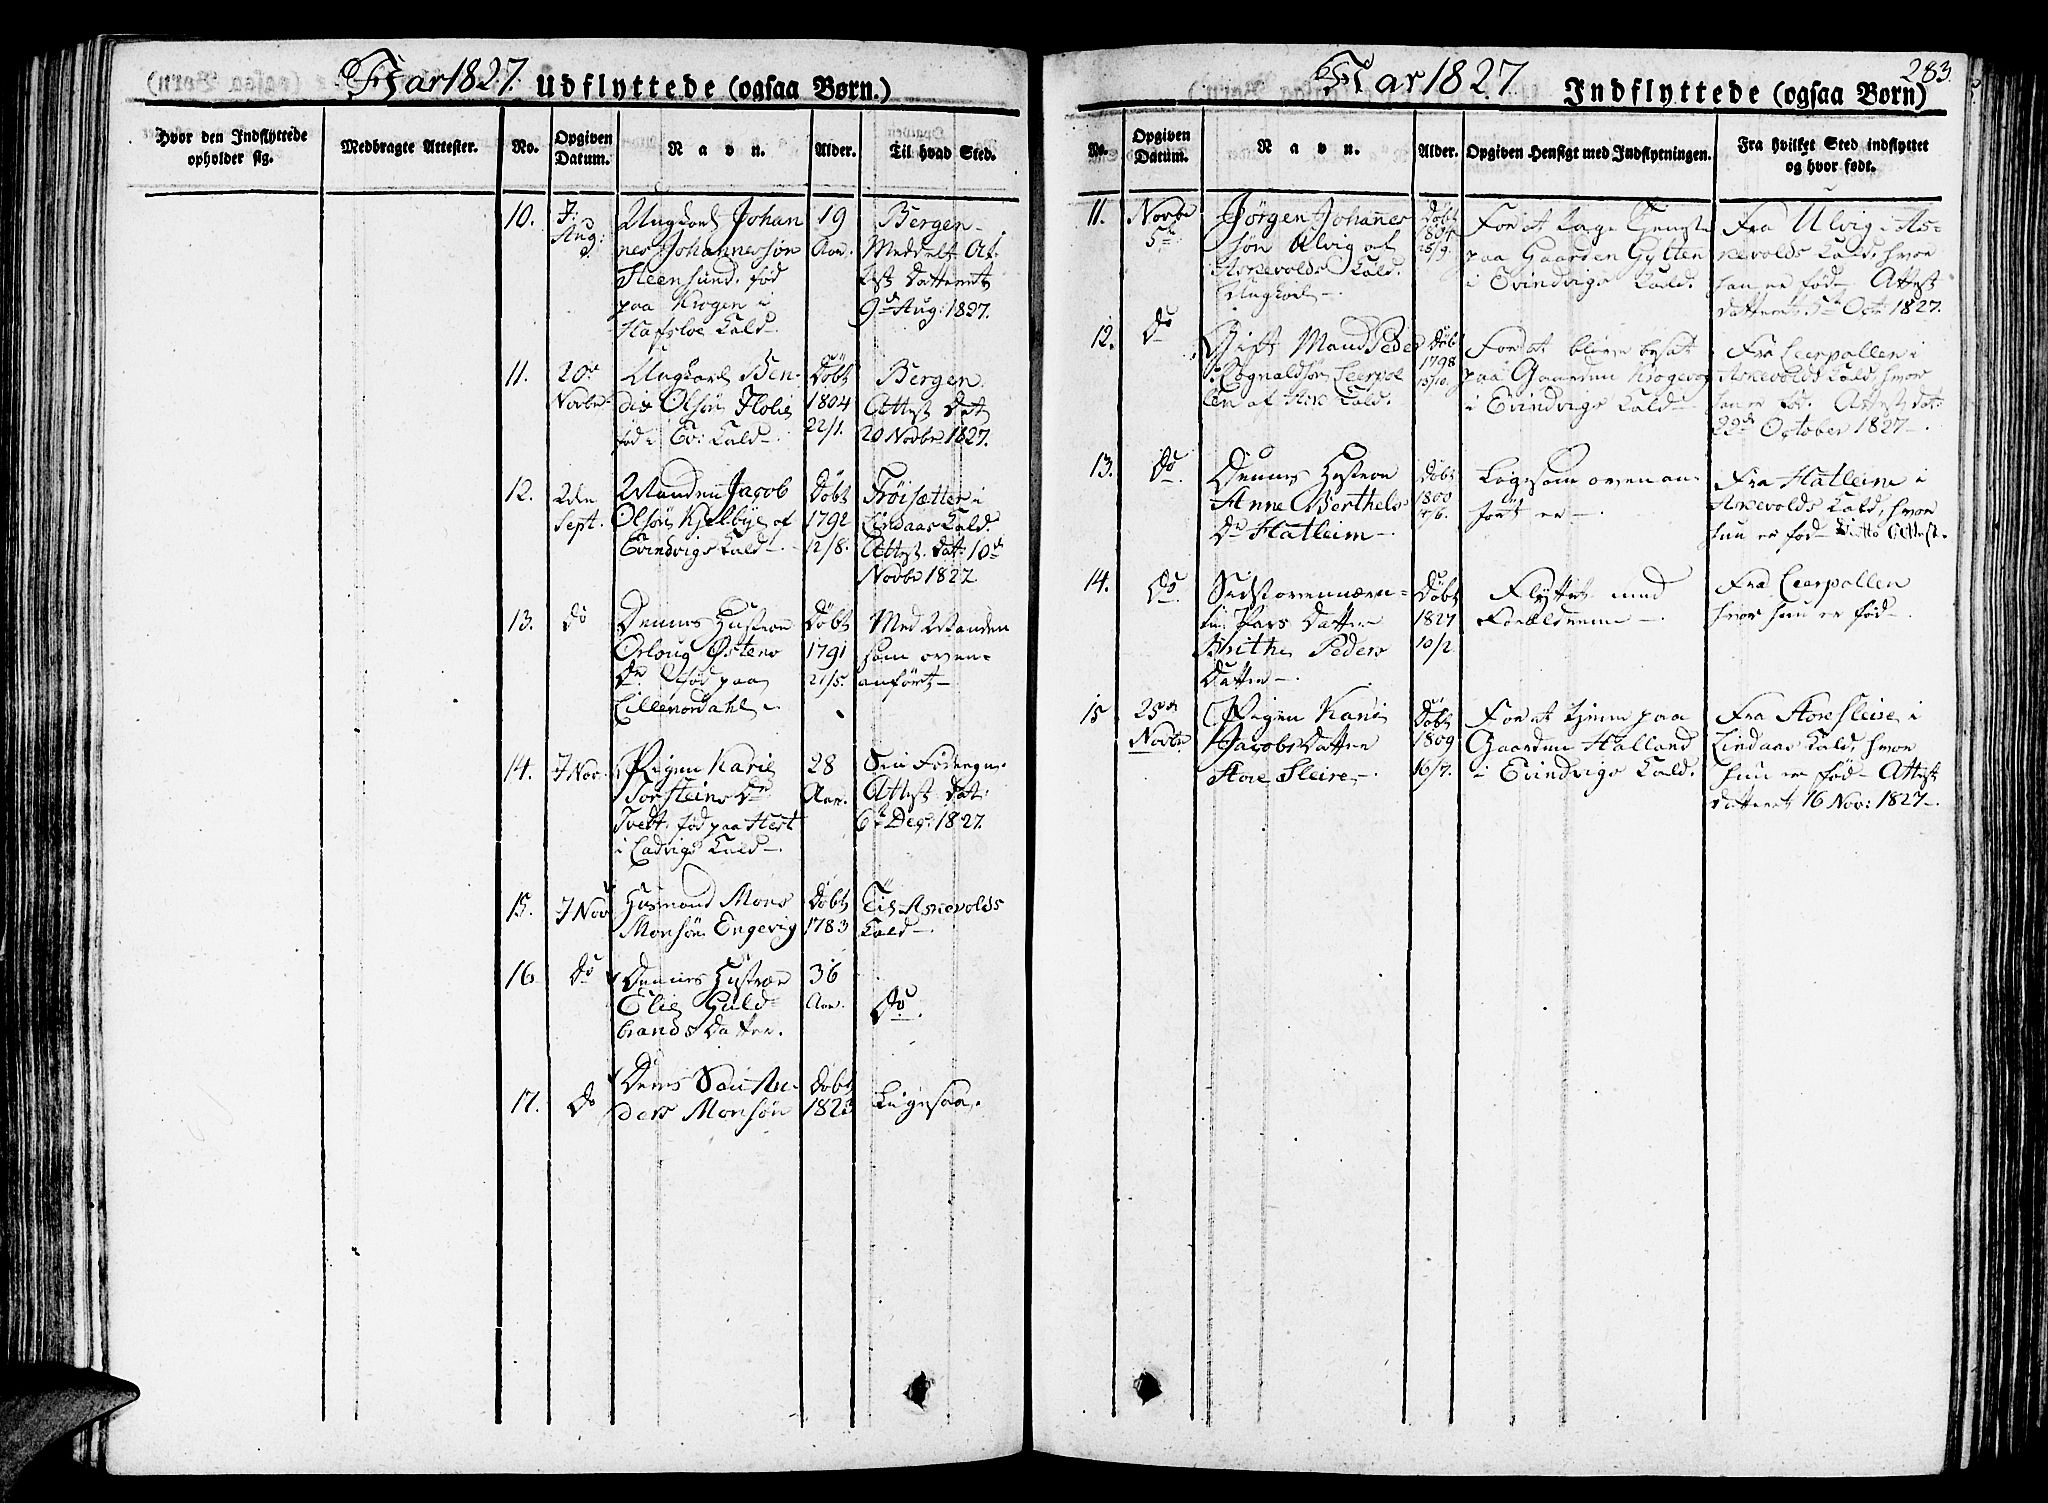 Aar 1827. Udflyttede (ogsaa Børn.)
Hvor den Indflyttede
opholder sig.
Medbragte Attester.
No.
Opgiven
Datum.
Navn.
Alder.
Til hvad Sted.
10.
7:
Aug:
Ungkarl Johan
nes Johannessøn
Steensund. fød
paa Krogen i
Hafsloe Kald
19
Aar.
Bergen
Meddelt At-
test Datteret
9de Aug: 1827.
11.
20de
Novbr
Ungkarl Ben-
dix Olsøn Flolie
fød i Ev: Kald
Døbt
1804
22/1.
Bergen.
Attest Dat
20 Novbr 1827.
12.
2den
Sept.
Manden Jacob
Olsøn Kjelbye af
Evindvigs Kald
Døbt
1792
12/8.
Frøisætter i
Lindaas Kald.
Attest. Dat: 10de
Novbr 1827
13.
Do
Dennes Hustroe
Orloug Østens
Dr. fød paa
Lillenordahl.
Døbt
1791
21/5.
Med Manden
som oven-
anført
14.
7 Nov.
Pigen Karie
Torsteins Dr
Tvedt. fød paa Hest
i Ladvigs Kald
28
Aar.
Sin Fødeegn.
Attest Dat:
6te Dec: 1827.
15.
7 Nov
Husmand Mons
Monsøn Engevig
Døbt
1783
Til Askevolds
Kald
16
Do
Dennes Hustroe
Elie Guld-
brands Datter.
36
Aar.
Do.
17.
Do
Deres Søn An-
ders Monsøn
Døbt
1823
Ligesaa.
Aar 1827 Indflyttede (ogsaa Børn)
283.
No.
Opgiven
Datum.
Navn.
Alder.
Opgiven Hensigt med Indflytningen.
Fra hvilket Sted indflyttet
og hvor født.
11.
Novbr
5te
Jørgen Johannes
søn Ulvig af
Askevolds Kald.
Ungkarl
Døbt
1804
For at tage Tjeneste
paa Gaarden Gytten
i Evindvigs Kald.
Fra Ulvig i As-
kevolds Kald, hvor
han er fød. Attest
datteret 5te Oct 1827.
12.
Do
Gift Mand Peder
Rognaldsøn Leerpol
len af Ask: Kald.
Døbt
1798
15/10.
For at blive bosat
paa Gaarden Krogevog
i Evindvigs Kald
Fra Leerpollen i
Askevolds Kald, hvor
han er fød. Attest dat:
22de October 1827
13.
Do
Dennes Hustroe
Anne Berthels
Dr Hatleim
Døbt
1800
Ligesom ovenan-
ført er
Fra Hatleim i
Askevolds Kald, hvor
hun er fød Ditto Attest.
14.
Do
Sidst ovennævn-
te Pars Datter
Brithe Peders
Datter
Døbt
1827
10/2
Flyttet med
Forældrene
Fra Leerpollen
hvor hun er fød
15
25de
Novbr
Pigen Kari
Jacobs Datter
Store Sleire
Døbt
1809
16/7.
For at tjene paa
Gaarden Halland
i Evindvigs Kald.
Fra Store Sleire i
Lindaas Kald, hvor
hun er fød Attest
datteret 16 Nov: 1827.